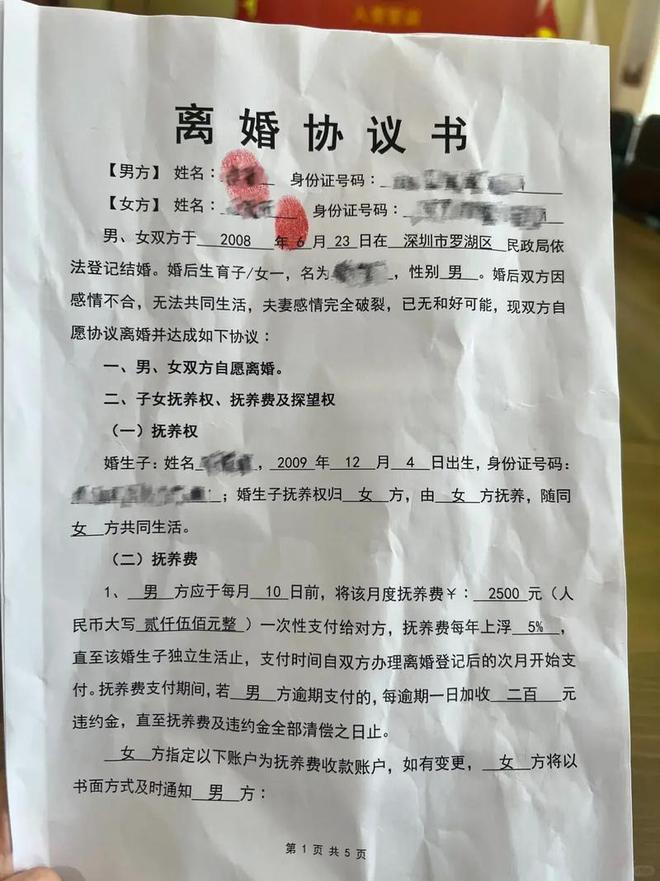 离婚协议书
【男方】 姓名： 身份证号码：
【女方】 姓名： 身份证号码：
男、女双方于 2008 年 6 月 23 日在 深圳市罗湖区 民政局依
法登记结婚。婚后生育子/女一，名为 ，性别 男 。婚后双方因
感情不合，无法共同生活，夫妻感情完全破裂，已无和好可能，现双方自
愿协议离婚并达成如下协议：
一、男、女双方自愿离婚。
二、子女抚养权、抚养费及探望权
（一）抚养权
婚生子：姓名 ，2009 年 12 月 4 日出生，身份证号码：
；婚生子抚养权归 女 方，由 女 方抚养，随同
女 方共同生活。
（二）抚养费
1、 男 方应于每月 10 日前，将该月度抚养费￥： 2500 元（人
民币大写 贰仟伍佰元整 ）一次性支付给对方，抚养费每年上浮 5% ，
直至该婚生子独立生活止，支付时间自双方办理离婚登记后的次月开始支
付。抚养费支付期间，若 男 方逾期支付的，每逾期一日加收 二百 元
违约金，直至抚养费及违约金全部清偿之日止。
女 方指定以下账户为抚养费收款账户，如有变更， 女 方将以
书面方式及时通知 男 方：
第 1 页 共 5 页